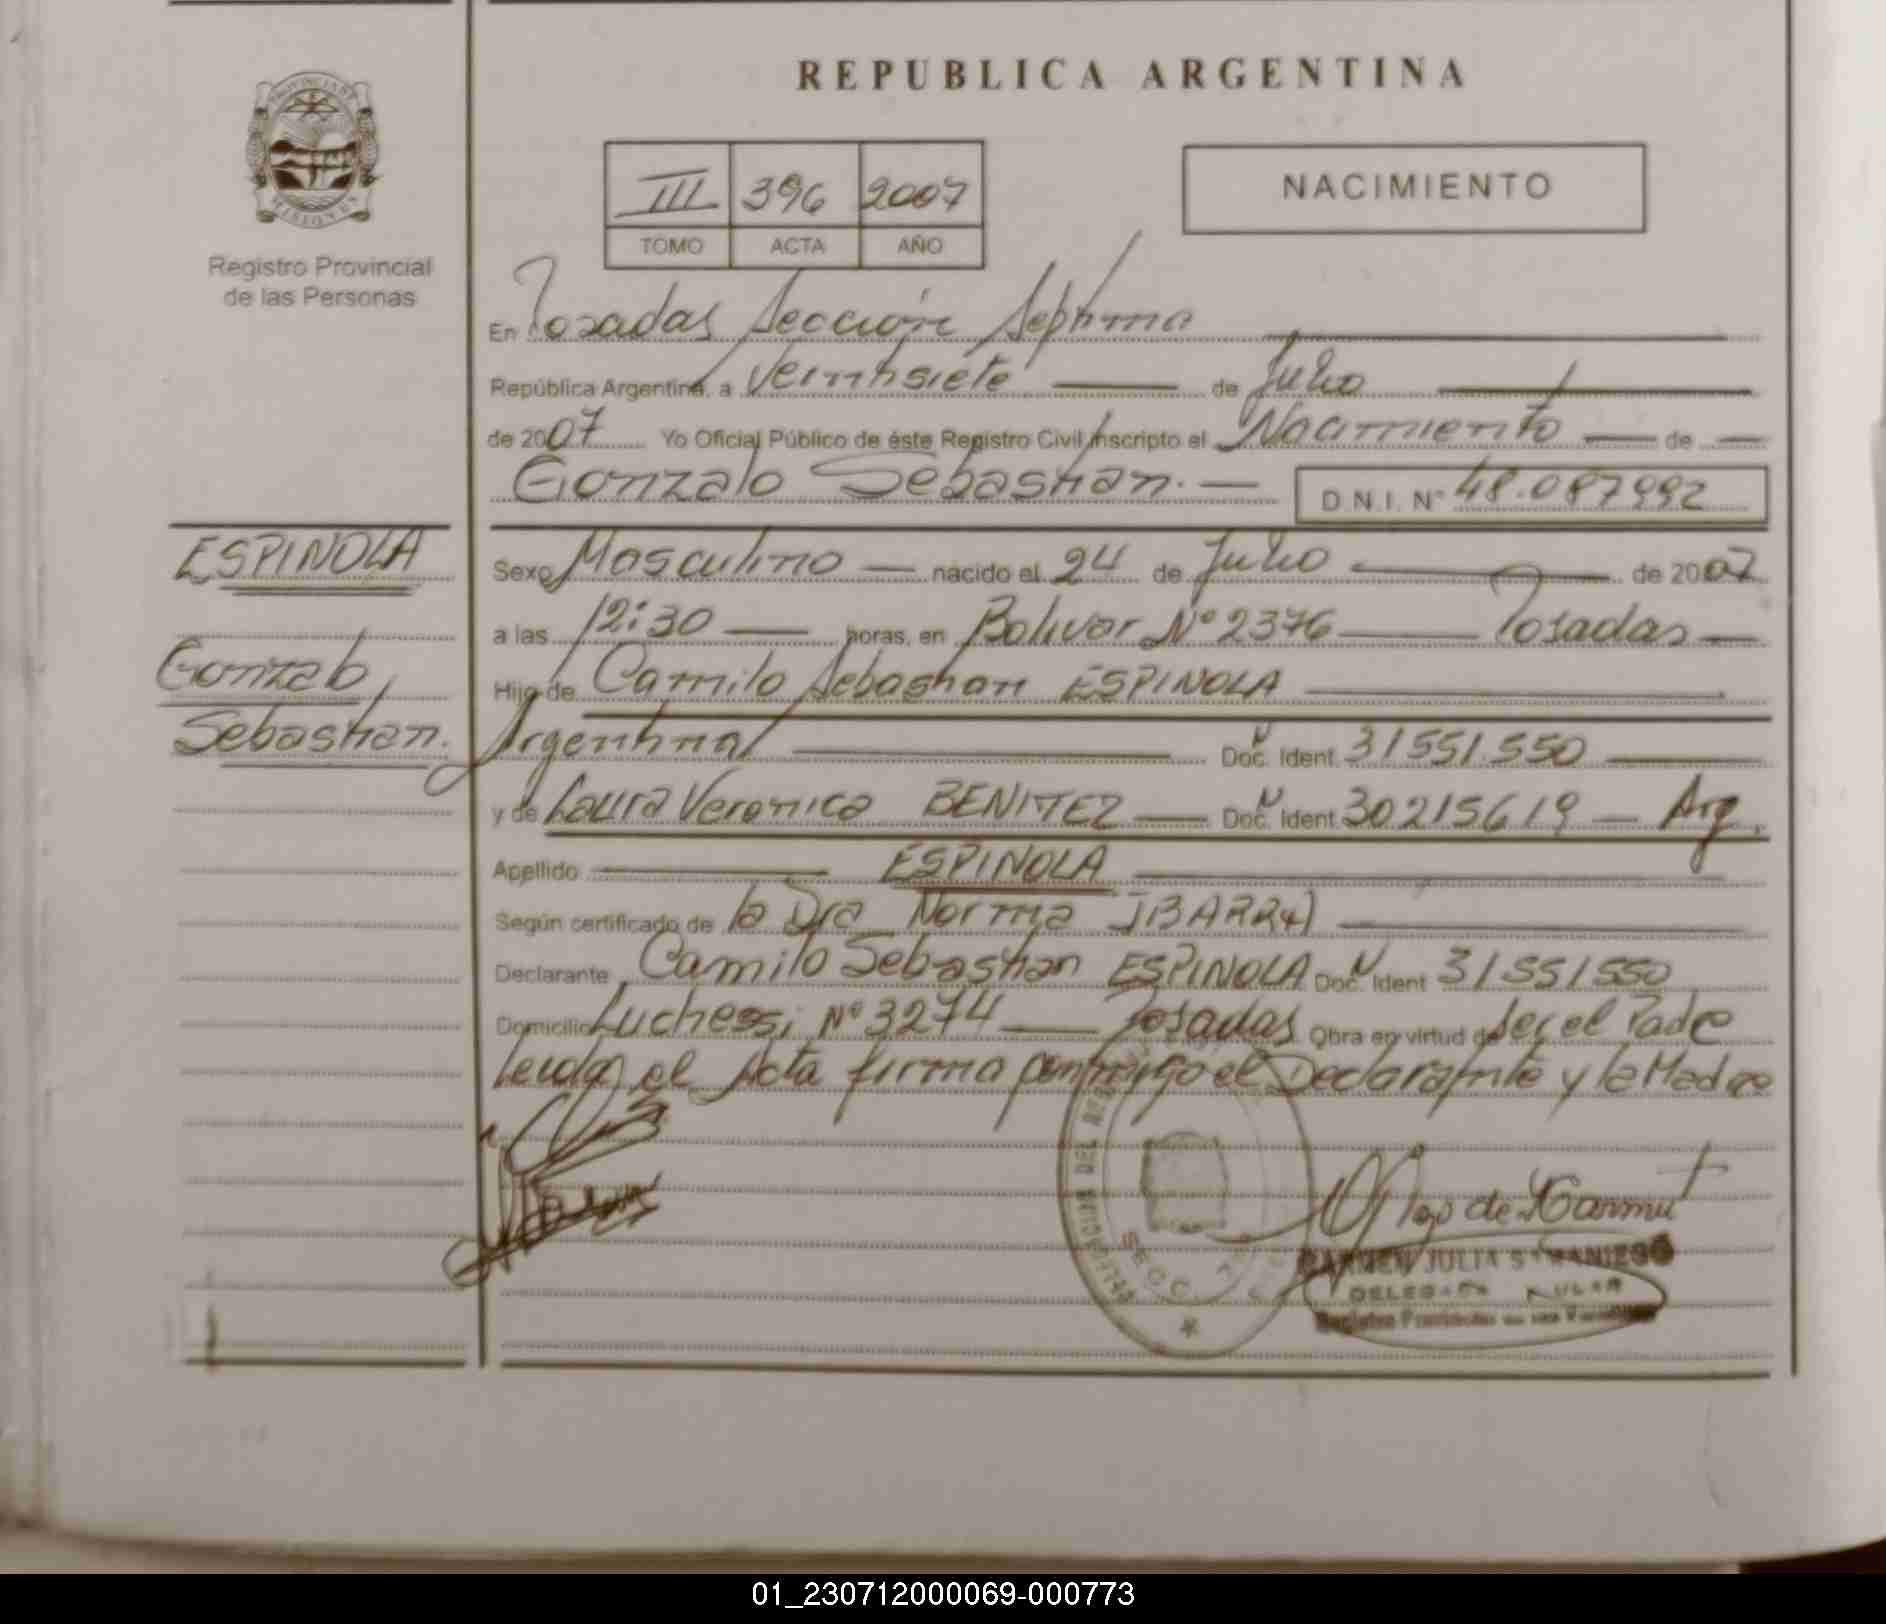 REPUBLICA ARGENTINA
PROVINCIA DE
MISIONES
Registro Provincial
de las Personas
III 396 2007
TOMO ACTA AÑO
NACIMIENTO
En Posadas Sección Séptima
República Argentina, a Veintisiete de Julio
de 2007 Yo Oficial Público de éste Registro Civil, inscripto el Nacimiento de
Gonzalo Sebastian. D.N.I. N° 48.087992
ESPINOLA
Gonzalo,
Sebastian.
Sexo Masculino nacido el 24 de Julio de 2007
a las 12:30 horas, en Bolivar N° 2376 Posadas
Hijo de Camilo Sebastian ESPINOLA
Argentina Doc. Ident. 31551.550
y de Laura Veronica BENITEZ Doc. Ident. 30215619 Arg.
Apellido ESPINOLA
Según certificado de la Dra Norma
Declarante Camilo Sebastian ESPINOLA Doc. Ident 31551550
Domicilio Luchessi N° 3274 Posadas Obra en virtud de Ser el Padre
Leida el Acta firma conmigo el Declarante y la Madre
SECC. 7
CARMEN JULIA
01_230712000069-000773